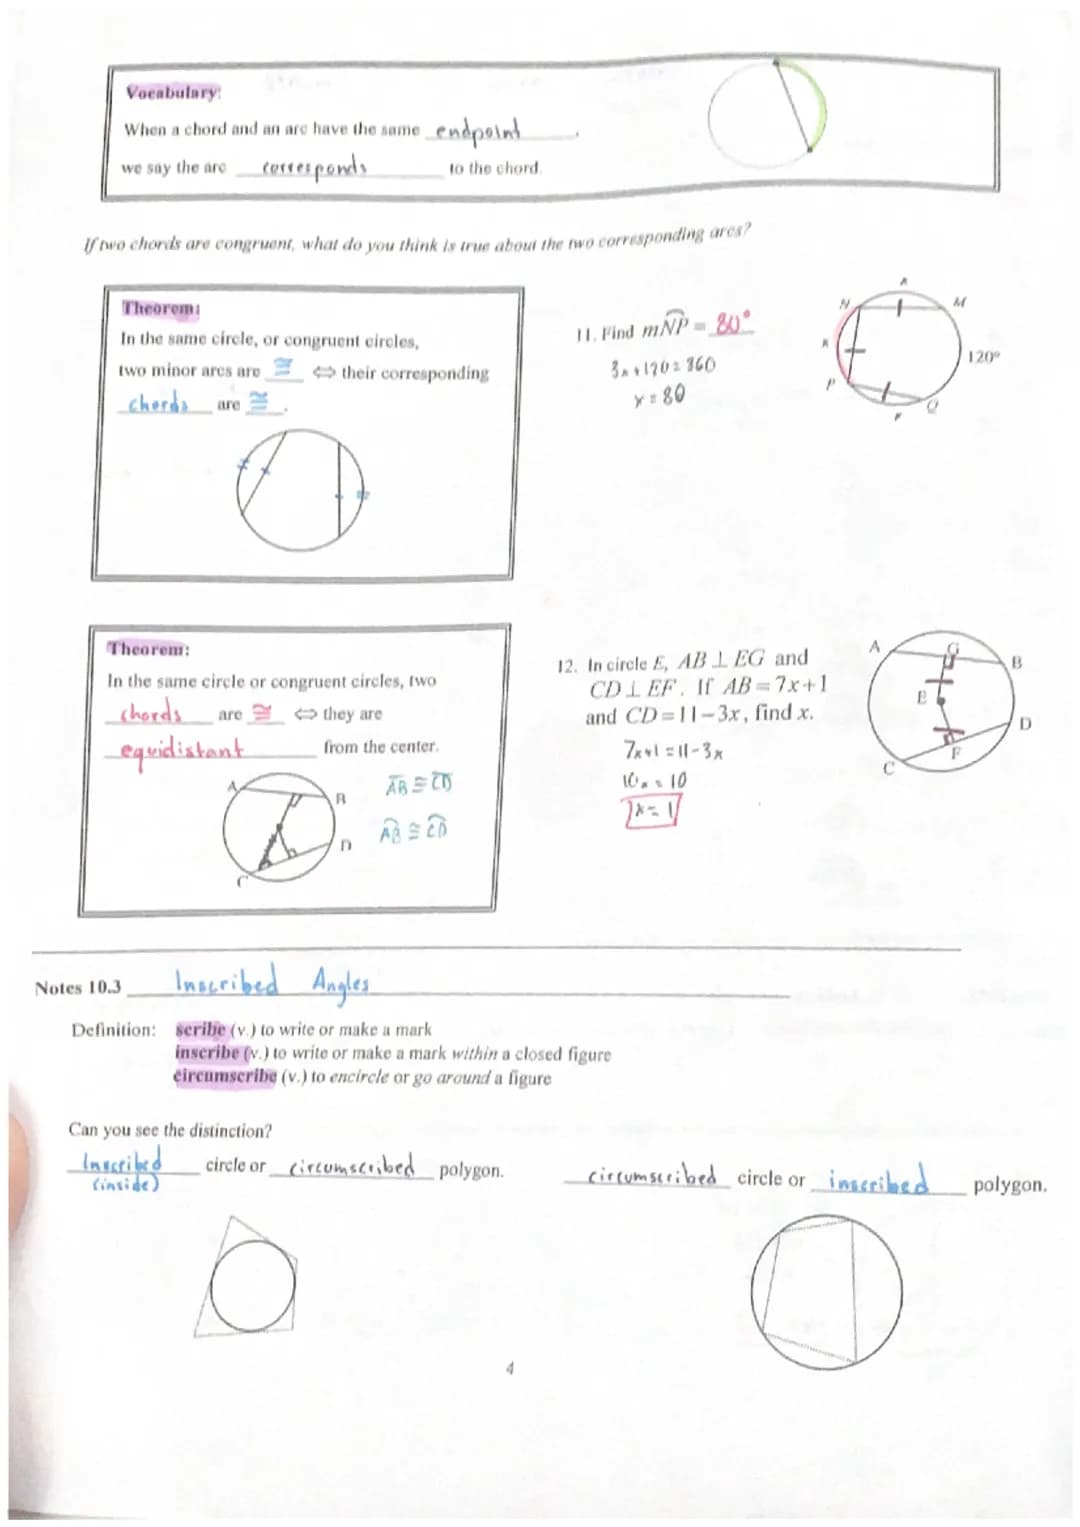 Vocabulary:
When a chord and an arc have the same endpoint,
we say the arc corresponds to the chord.
If two chords are congruent, what do you think is true about the two corresponding arcs?
Theorem:
In the same circle, or congruent circles,
two minor arcs are ≅ ⇔ their corresponding
chords are ≅.
11. Find mNP = 80°
3x+120=360
x=80
N
x
M
x
120°
P
x
Q
Theorem:
In the same circle or congruent circles, two
chords are ≅ ⇔ they are
equidistant from the center.
AB ≅ CD
AB ≅ CD
A
B
D
C
12. In circle E, AB ⊥ EG and
CD ⊥ EF. If AB=7x+1
and CD=11-3x, find x.
7x+1=11-3x
10x=10
x=1
A
G
B
E
D
F
C
Notes 10.3 Inscribed Angles
Definition: scribe (v.) to write or make a mark
inscribe (v.) to write or make a mark within a closed figure
circumscribe (v.) to encircle or go around a figure
Can you see the distinction?
Inscribed circle or circumscribed polygon.
(inside)
circumscribed circle or inscribed polygon.
4